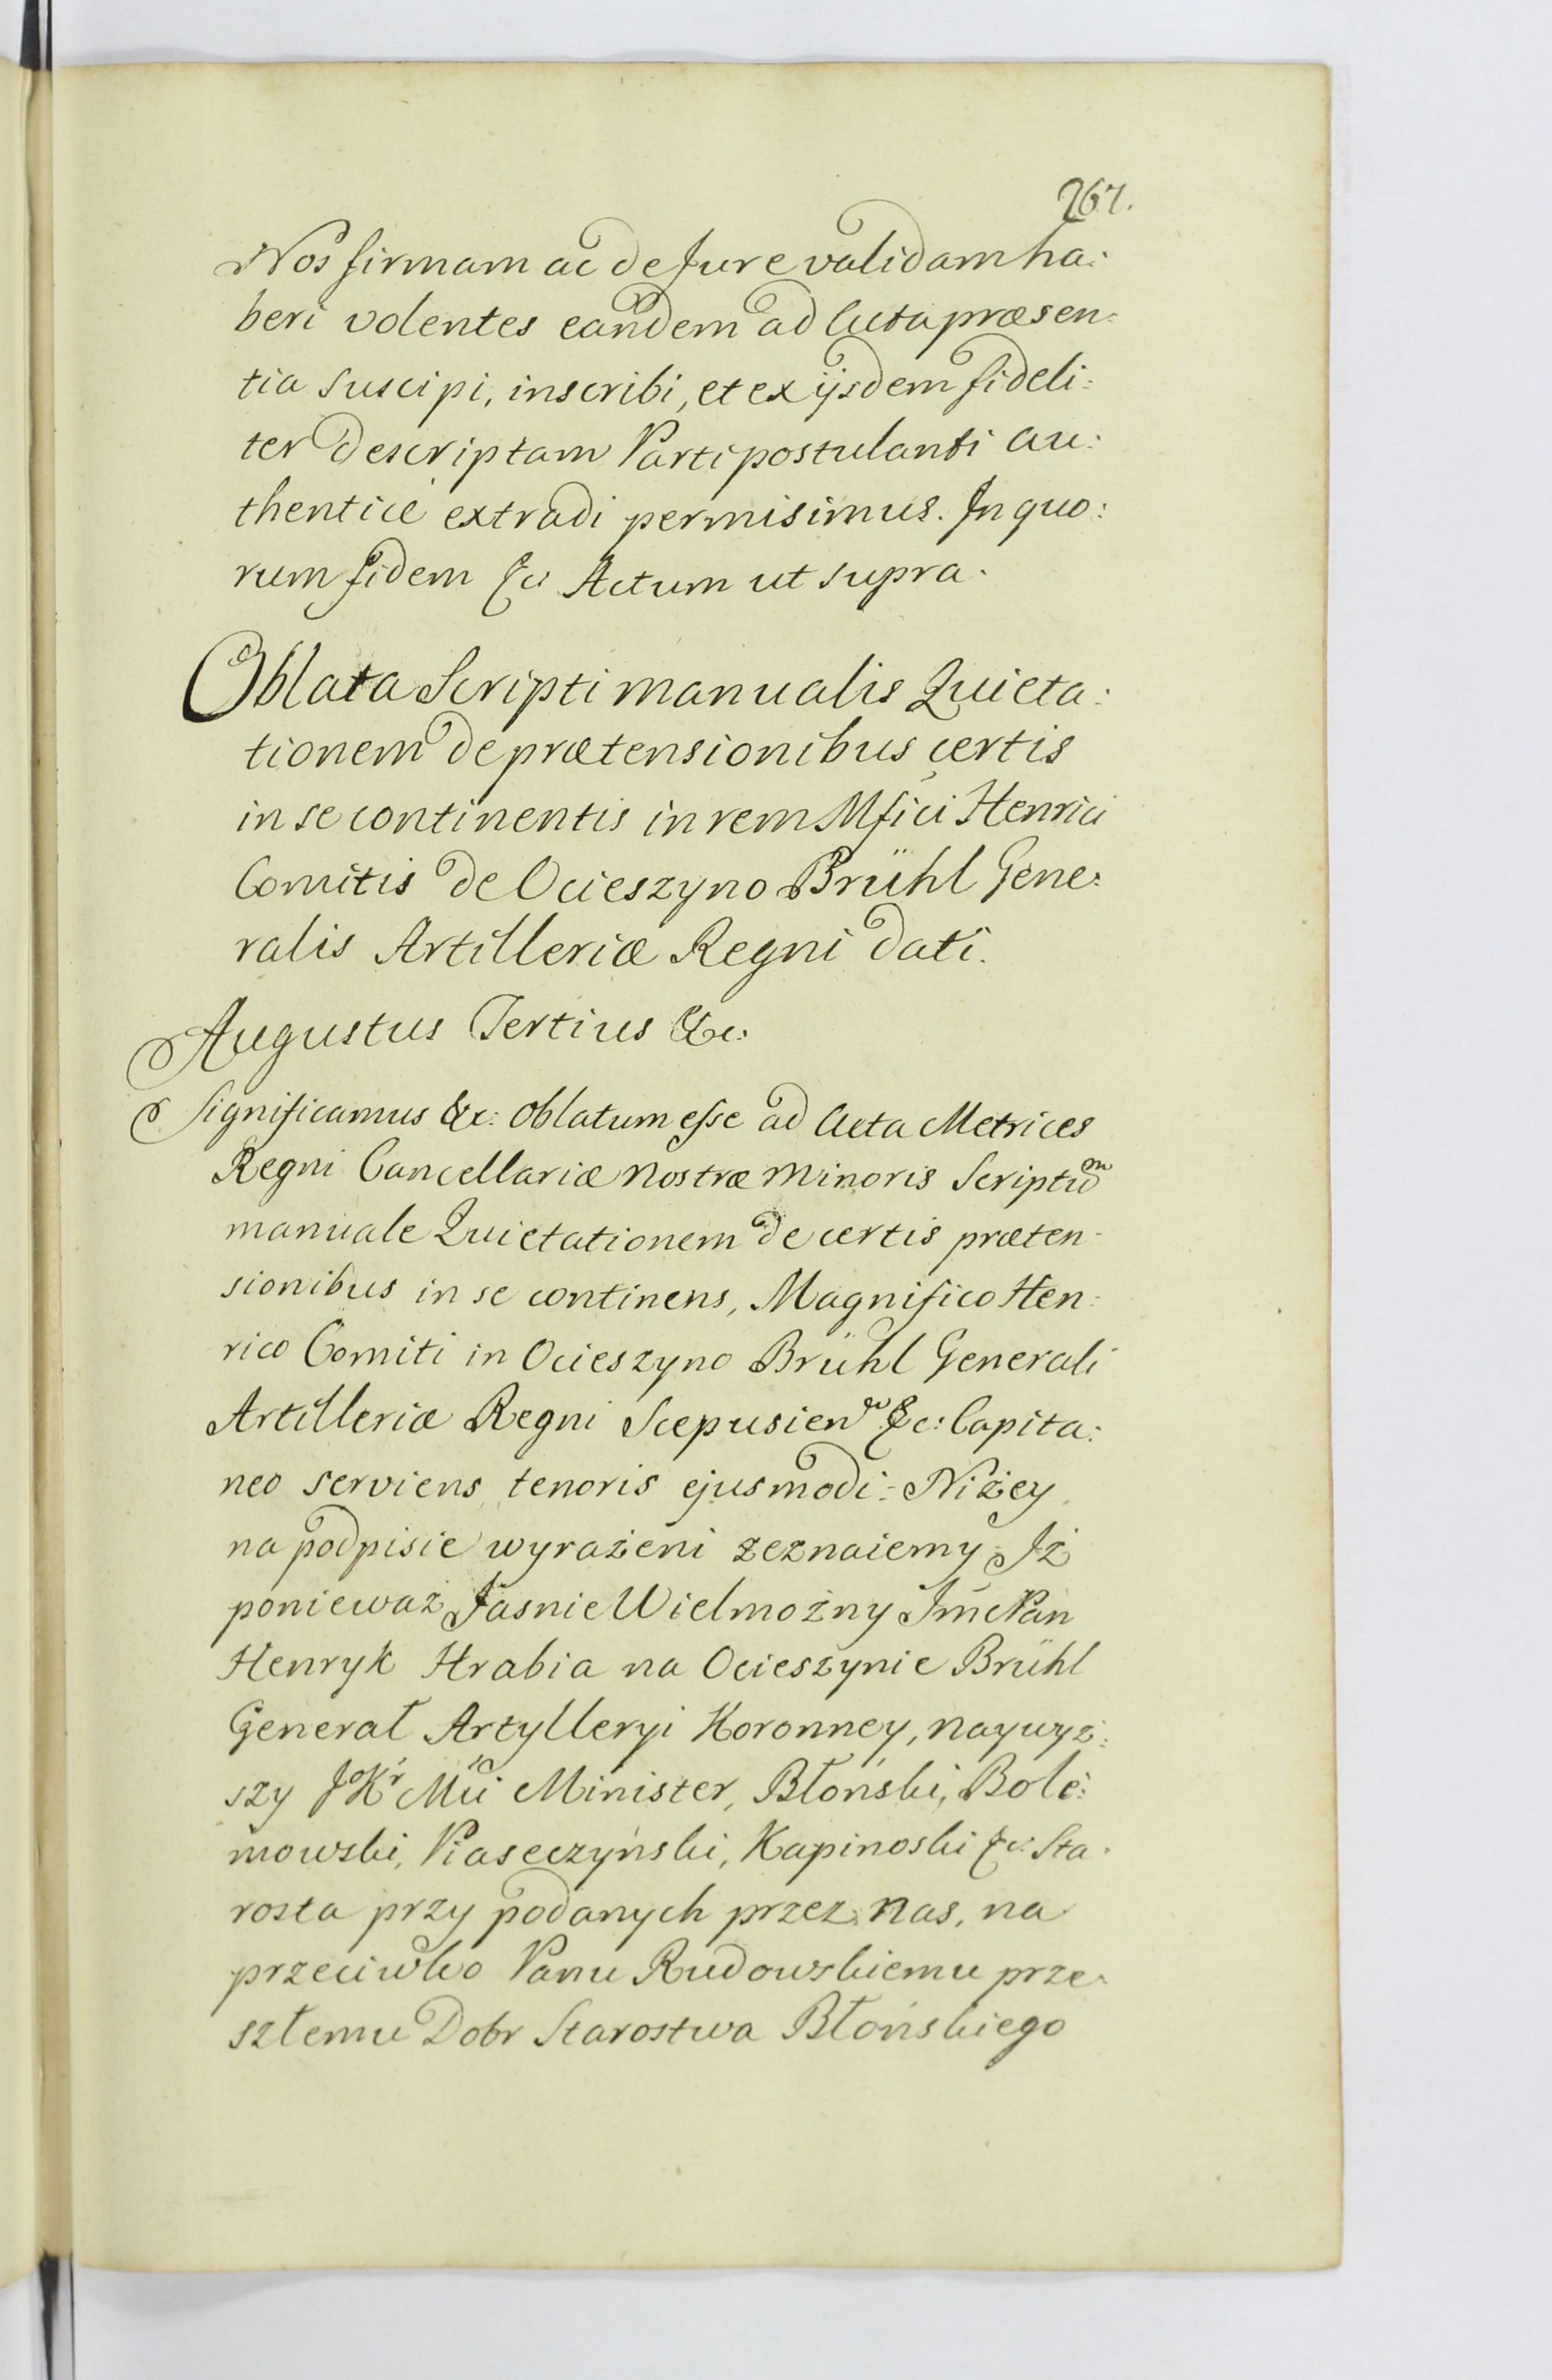 267.
Nos firmam ac de Jure validam ha:
beri volentes eandem ad Acta præsen:
tia suscipi, inscribi, et ex ijsdem fideli:
ter descriptam Parti postulanti au:
thentice extradi permisimus. In quo:
rum fidem &c: Actum ut supra.
Oblata Scripti manualis Quieta:
tionem de prætensionibus certis
in se continentis in rem Mfici Henrici
Comitis de Ocieszyno Brühl Gene:
ralis Artilleriæ Regni dati.
Augustus Tertius &c:
Significamus &c: Oblatum esse ad Acta Metrices
Regni Cancellariæ nostræ minoris Scriptum
manuale Quietationem de certis præten-
sionibus in se continens, Magnifico Hen:
rico Comiti in Ocieszyno Brühl Generali
Artilleriæ Regni Scepusien &c: Capita:
neo serviens, tenoris ejusmodi: Niżey
na podpisie wyrażeni zeznaiemy, Iż
ponieważ Jasnie Wielmożny Jmć Pan
Henryk Hrabia na Ocieszynie Brühl
Generał Artylleryi Koronney, naywyż:
szy JKr Mci Minister, Błoński, Boli:
mowski, Piaseczyński, Kapinoski &c: Sta:
rosta przy podanych przez nas, na
przeciwko Panu Rudowskiemu prze:
szłemu Dobr Starostwa Błońskiego